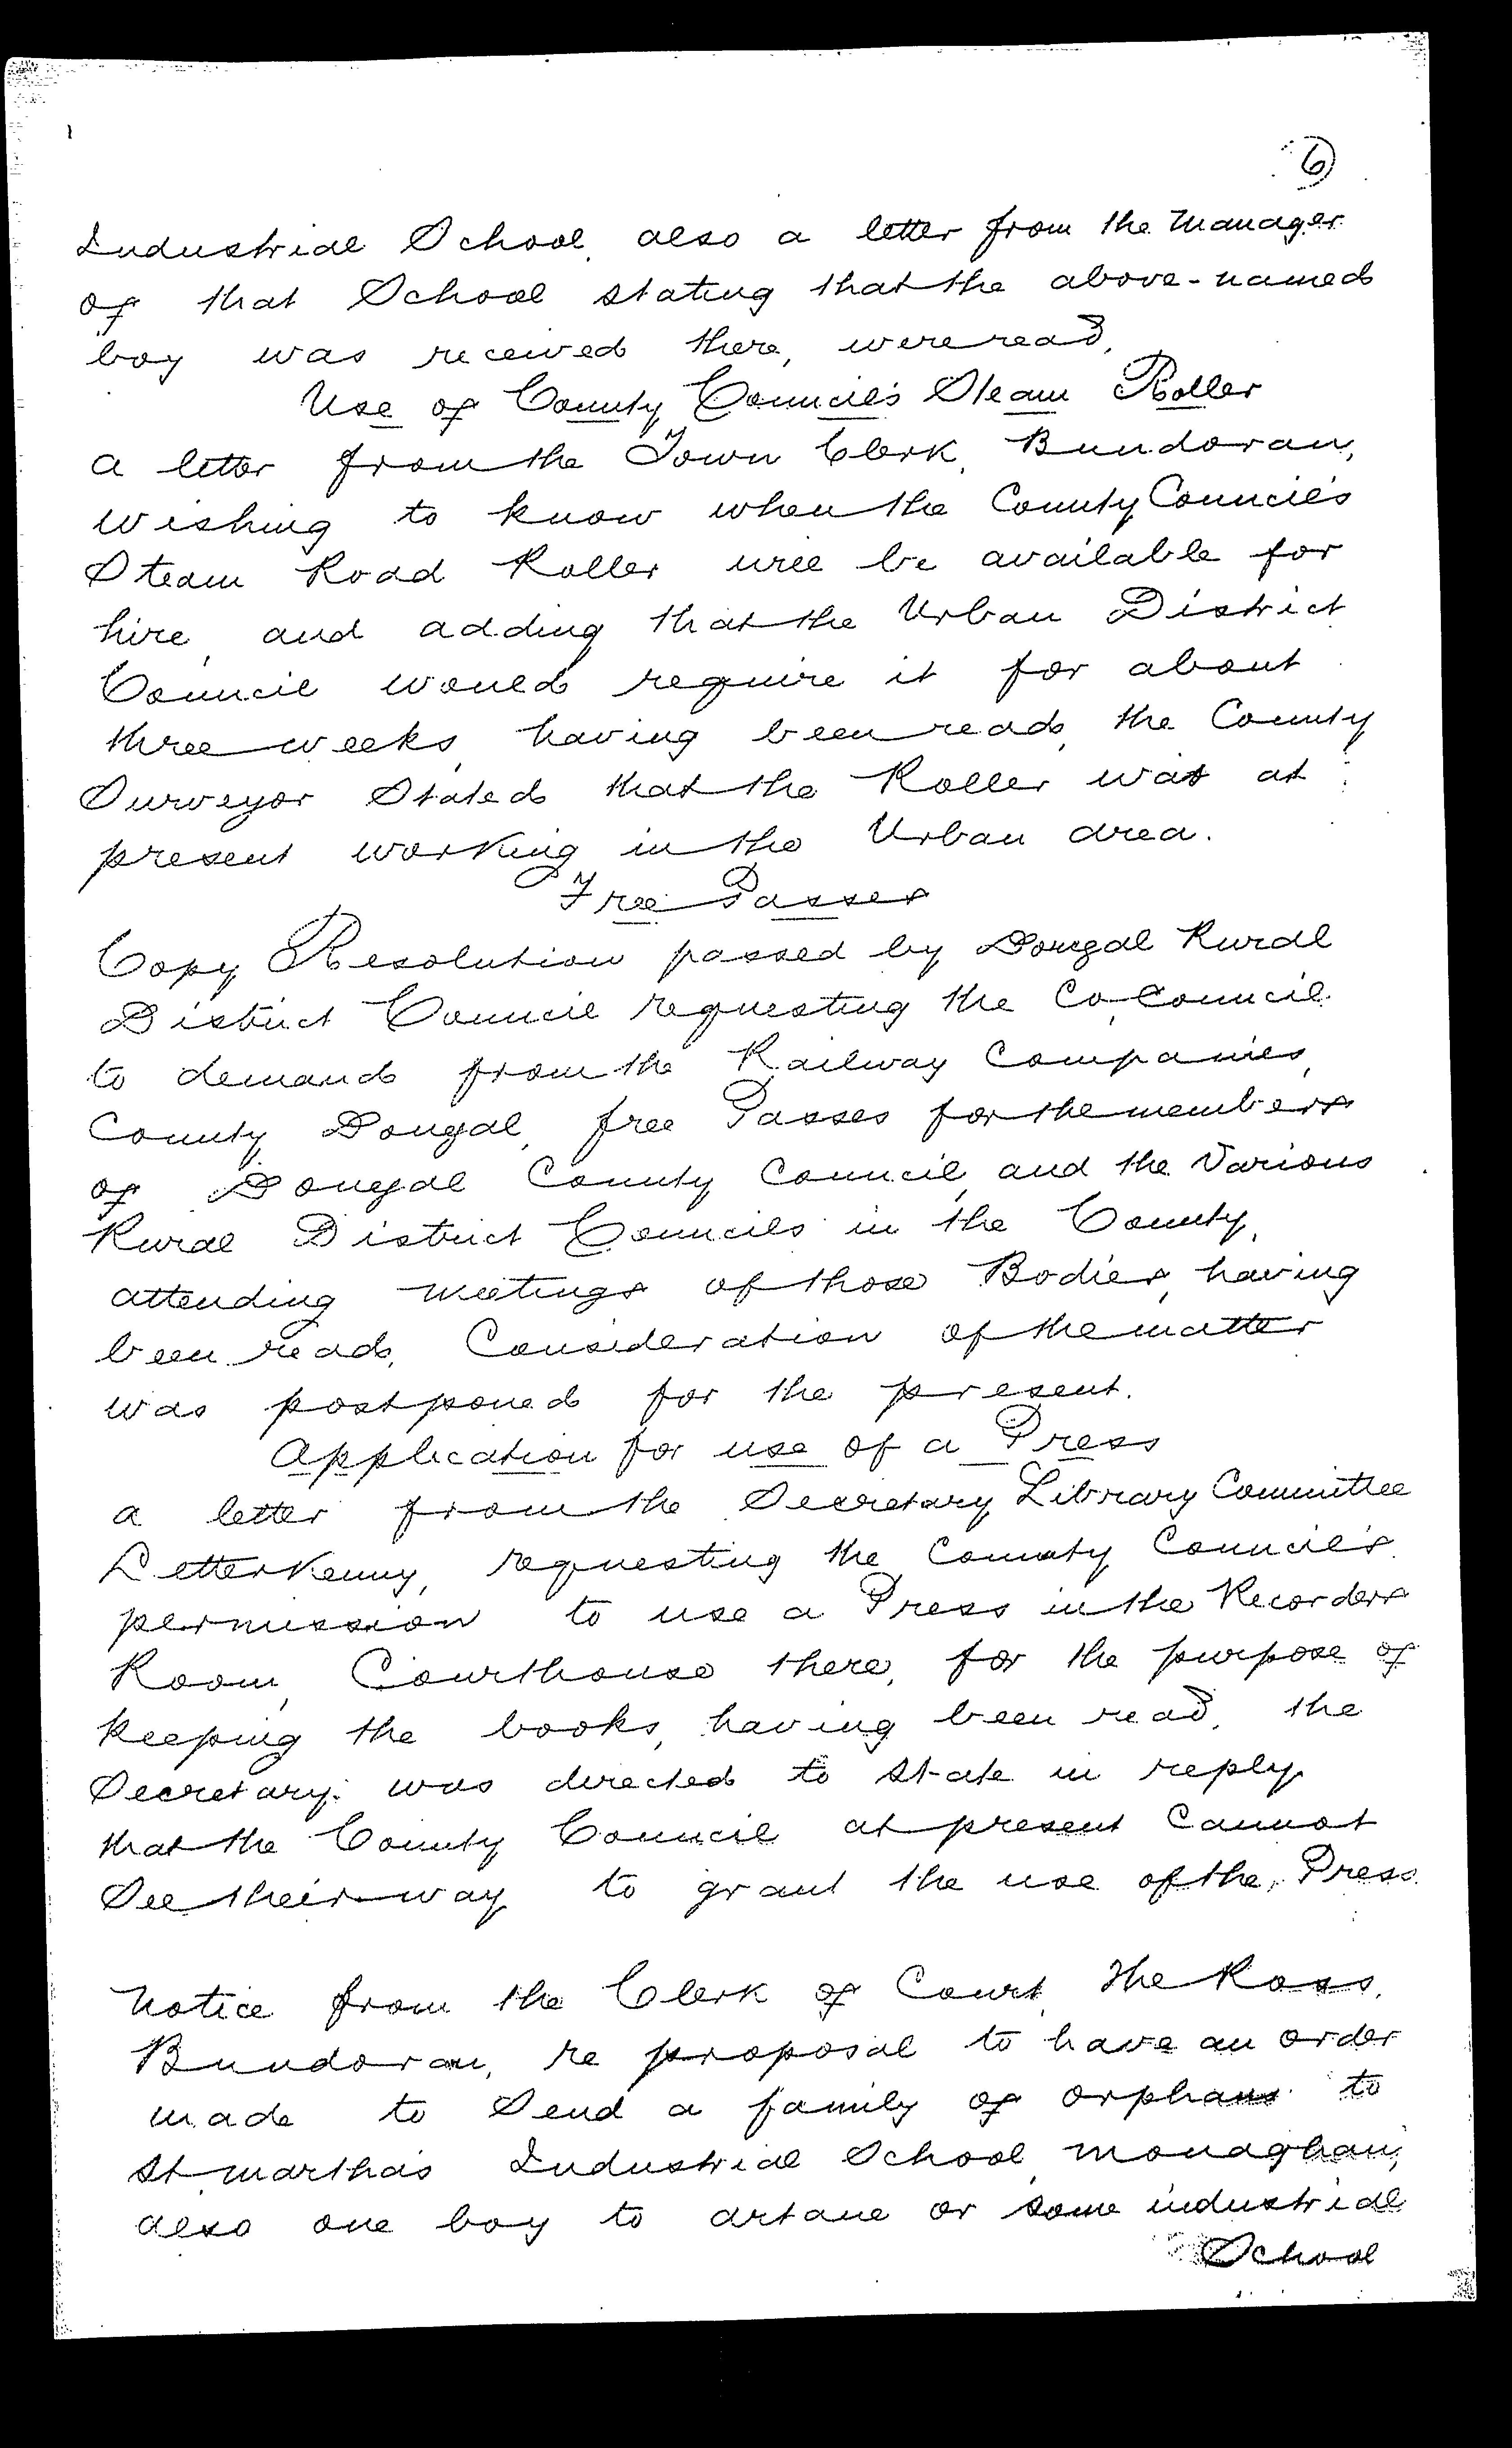 6
Industrial School, also a letter from the Manager
of that School stating that the above-named
boy was received there, were read.
Use of County Council's Steam Roller
A letter from the Town Clerk, Bundoran,
wishing to know when the County Council's
Steam Road Roller will be available for
hire, and adding that the Urban District
Council would require it for about
three weeks, having been read, the County
Surveyor Stated that the Roller was at
present working in the Urban area.
Free Passes
Copy Resolution passed by Donegal Rural
District Council requesting the Co. Council
to demand from the Railway Companies,
County Donegal, free Passes for the members
of Donegal County Council, and the Various
Rural District Councils in the County,
attending meetings of those Bodies, having
been read, Consideration of the matter
was postponed for the present.
Application for use of a Press
A letter from the Secretary Library Committee
Letterkenny, requesting the County Council's
permission to use a Press in the Recorders
Room, Courthouse there, for the purpose of
keeping the books, having been read, the
Secretary was directed to state in reply
that the County Council at present Cannot
See their way to grant the use of the Press.
Notice from the Clerk of Court, The Ross,
Bundoran, re proposal to have an order
made to Send a family of orphans to
St Martha's Industrial School, Monaghan,
also one boy to Artane or some industrial
School